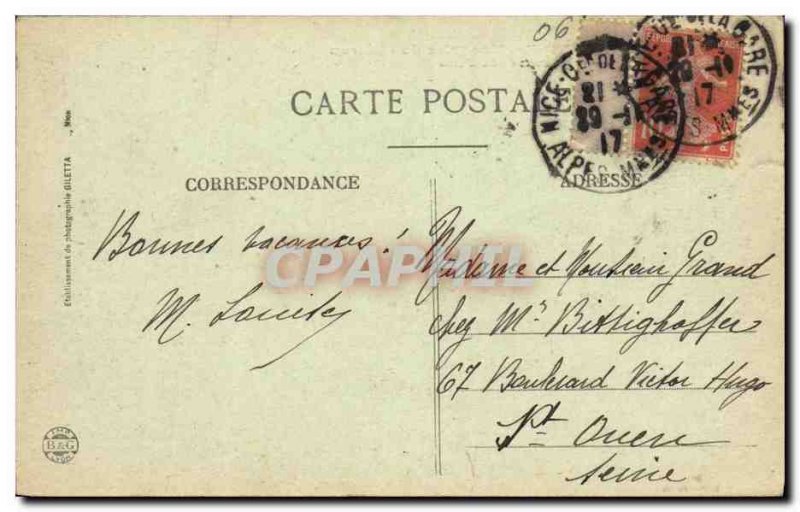 06
CARTE POSTA
CORRESPONDANCE
ADRESSE
Etablissement de photographie GILETTA, Nice
Bonnes vacances !
M.
Madame et Monsieur Grand
chez Mr Bittighoffer
67 Boulevard Victor Hugo
St Ouen
Seine
NICE
21 *
29
17
ALPES
GARE
21 *
17
IMP
B&G
LYON
CPAPHIL